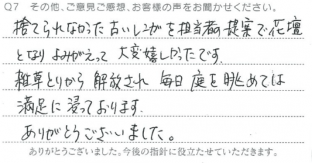 Q7 その他、ご意見ご感想、お客様の声をお聞かせください。
捨てられなかった古いレンガを担当者の提案で花壇
となり よみがえって 大変嬉しかったです。
雑草とりから 解放され 毎日 庭を眺めては
満足に 浸っております。
ありがとうございました。
ありがとうございました。今後の指針に役立たせていただきます。